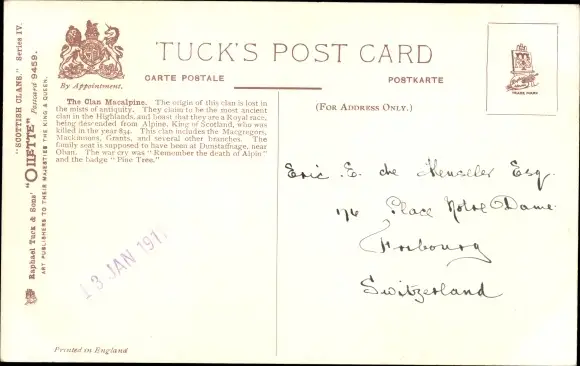 "SCOTTISH CLANS." Series IV.
Raphael Tuck & Sons' "OILETTE" Postcard 9459.
ART PUBLISHERS TO THEIR MAJESTIES THE KING & QUEEN.
By Appointment.
TUCK'S POST CARD
CARTE POSTALE
POSTKARTE
TRADE MARK
(FOR ADDRESS ONLY.)
The Clan Macalpine. The origin of this clan is lost in
the mists of antiquity. They claim to be the most ancient
clan in the Highlands, and boast that they are a Royal race,
being descended from Alpine, King of Scotland, who was
killed in the year 834. This clan includes the Macgregors,
Mackinnons, Grants, and several other branches. The
family seat is supposed to have been at Dunstaffnage, near
Oban. The war cry was "Remember the death of Alpin"
and the badge "Pine Tree."
Eric. E. de Esq.
Place Notre Dame
Fribourg
Switzerland
13 JAN 191
Printed in England